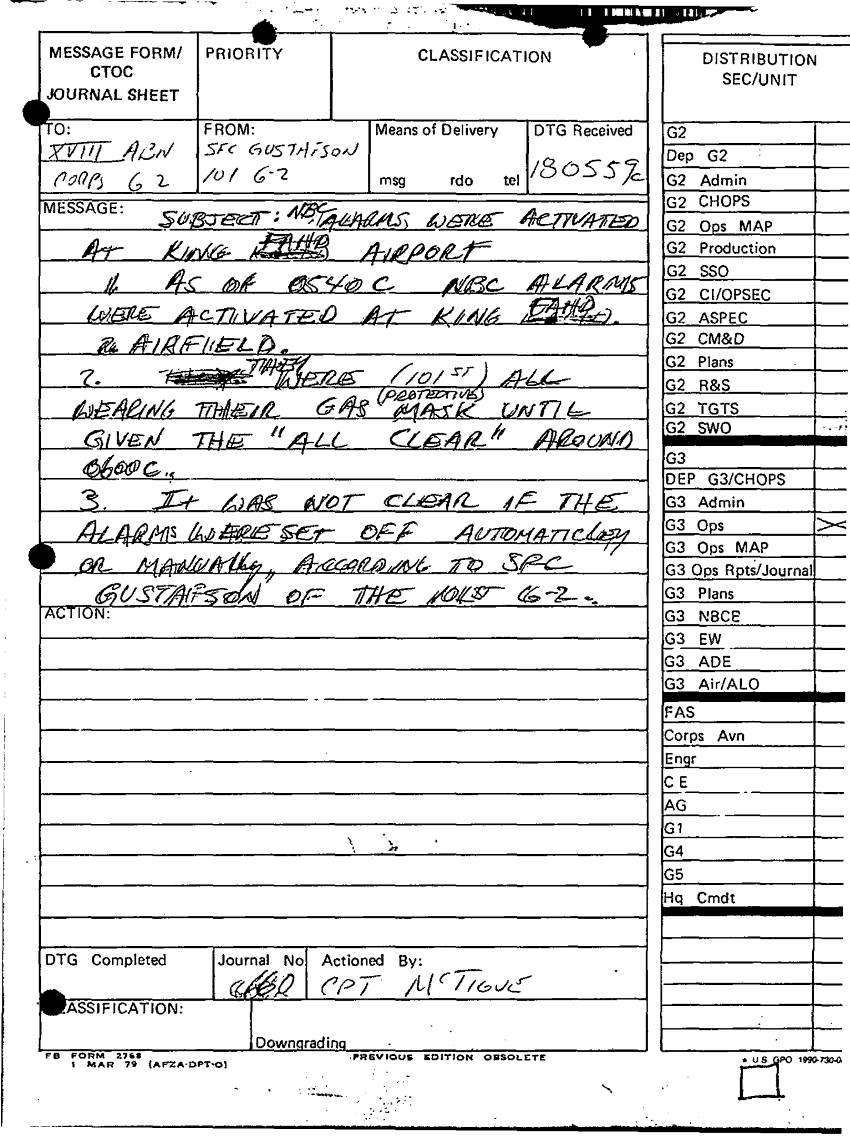 MESSAGE FORM/
CTOC
JOURNAL SHEET
PRIORITY
CLASSIFICATION
TO:
XVIII ABN
CORPS G2
FROM:
SFC GUSTAFSON
101 G-2
Means of Delivery
msg rdo tel
DTG Received
180559c
MESSAGE:
SUBJECT: NBC ALARMS WERE ACTIVATED
AT KING FAHD AIRPORT
1. AS OF 0540C NBC ALARMS
WERE ACTIVATED AT KING FAHD.
AIRFIELD.
2. THEY WERE (101ST) ALL
WEARING THEIR GAS (PROTECTIVE) MASK UNTIL
GIVEN THE "ALL CLEAR" AROUND
0600C.
3. It WAS NOT CLEAR IF THE
ALARMS WERE SET OFF AUTOMATICLEY
OR MANUALLy, ACCORDING TO SPC
GUSTAFSON OF THE 101ST G-2.
ACTION:
DTG Completed
Journal No
Actioned By:
CPT McTIGUE
CLASSIFICATION:
Downgrading
FB FORM 2768
1 MAR 79 (AFZA-DPT-O)
PREVIOUS EDITION OBSOLETE
DISTRIBUTION
SEC/UNIT
G2
Dep G2
G2 Admin
G2 CHOPS
G2 Ops MAP
G2 Production
G2 SSO
G2 CI/OPSEC
G2 ASPEC
G2 CM&D
G2 Plans
G2 R&S
G2 TGTS
G2 SWO
G3
DEP G3/CHOPS
G3 Admin
G3 Ops X
G3 Ops MAP
G3 Ops Rpts/Journal
G3 Plans
G3 NBCE
G3 EW
G3 ADE
G3 Air/ALO
FAS
Corps Avn
Engr
C E
AG
G1
G4
G5
Hq Cmdt
* US GPO 1990-730-0